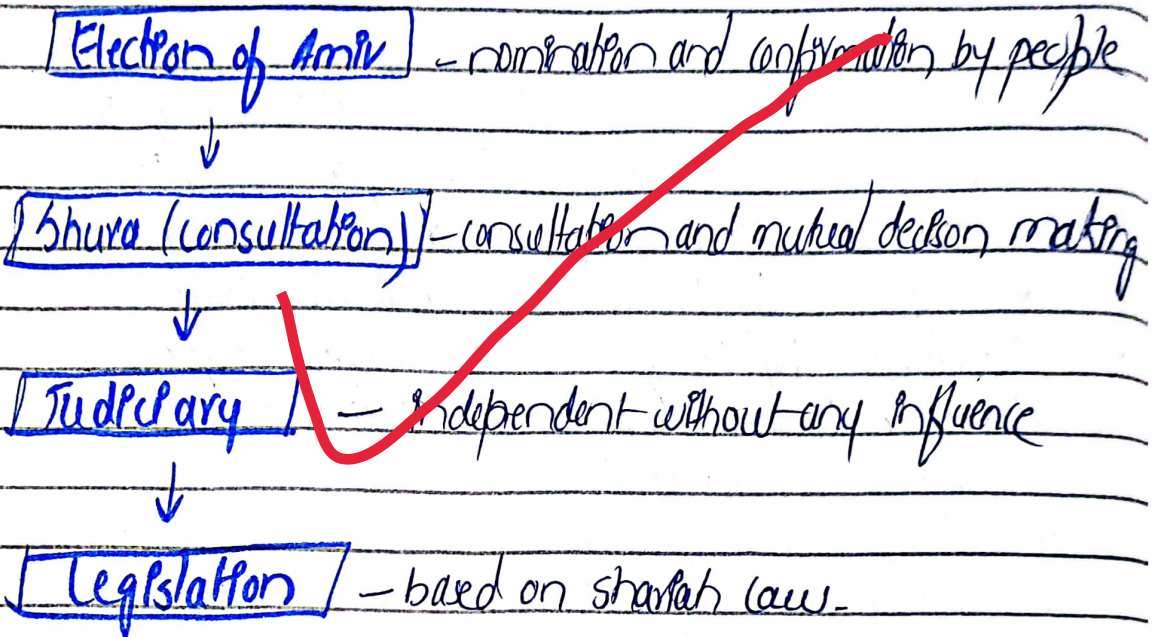 Election of Amir - nomination and confirmation by people
↓
Shura (consultation) - consultation and mutual decison making
↓
Judiciary - independent without any influence
↓
Legislation - based on shariah law.